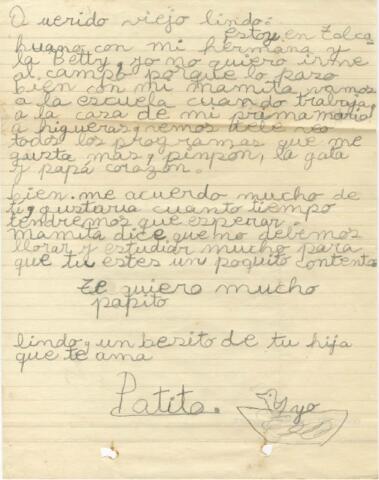 Querido viejo lindo:
estoy en Talca
huano con mi hermana y
la Betty, yo no quiero irme
al campo porque lo paso
bien con mi mamita vamos
a la escuela cuando trabaja,
a la casa de mi prima
a higueras, vemos
todos los programas que me
gusta mas, pinpon, la gata
y papá corazón.
bien. me acuerdo mucho de
ti, gustaria cuanto tiempo
tendremos que esperar
mamita dice que no debemos
llorar y estudiar mucho para
que tu estes un poquito contento
Te quiero mucho
papito
lindo, un besito de tu hija
que te ama
Patito.
yo